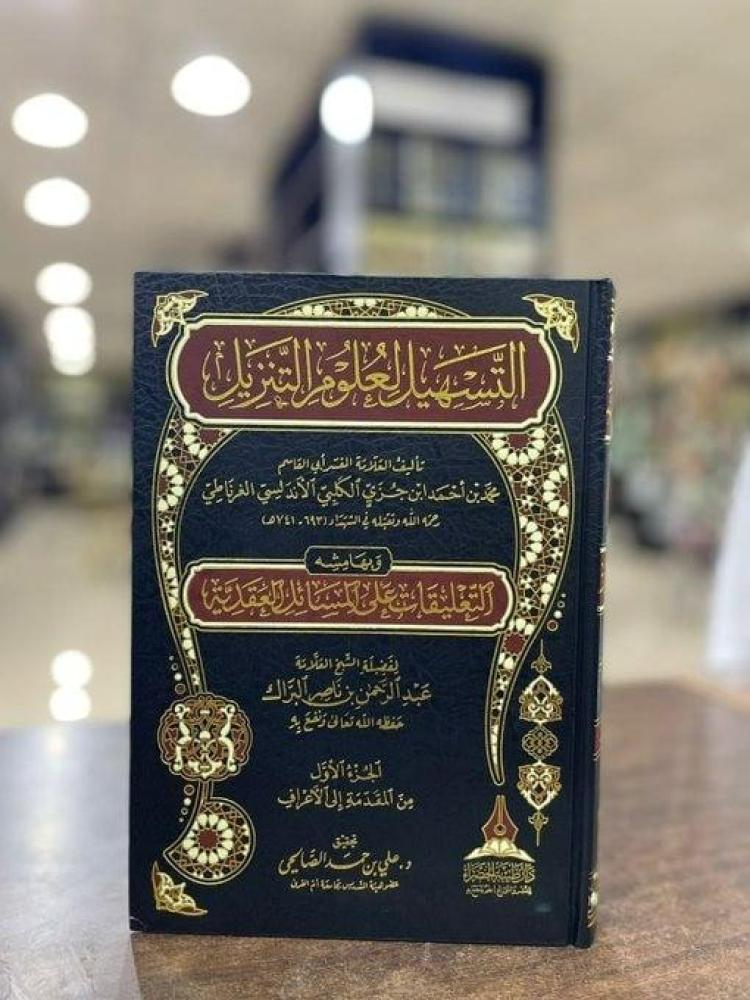 التَّسْهِيلُ لِعُلُومِ التَّنْزِيلِ
تأليف العلامة المفسر أبي القاسم
محمد بن أحمد ابن جُزَيّ الكلبي الأندلسي الغرناطي
رحمه الله وتقبله في الشهداء (٦٩٣ - ٧٤١هـ)
وبهامشه
التَّعْلِيقَاتُ عَلَى المَسَائِلِ العَقَدِيَّةِ
لفضيلة الشيخ العلامة
عبد الرحمن بن ناصر البراك
حفظه الله تعالى ونفع به
الجزء الأول
من المقدمة إلى الأعراف
تحقيق
د. علي بن حمد الصالحي
عضو هيئة التدريس بجامعة أم القرى
دار طيبة الخضراء